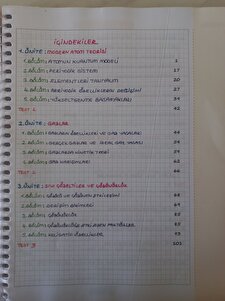 İÇİNDEKİLER
1. ÜNİTE: MODERN ATOM TEORİSİ
1. BÖLÜM: ATOMUN KUANTUM MODELİ
2. BÖLÜM: PERİYODİK SİSTEM 17
3. BÖLÜM: ELEMENTLERİ TANIYALIM 20
4. BÖLÜM: PERİYODİK ÖZELLİKLERİN DEĞİŞİMİ 27
5. BÖLÜM: YÜKSELTGENME BASAMAKLARI 34
TEST 1 42
2. ÜNİTE: GAZLAR
1. BÖLÜM: GAZLARIN ÖZELLİKLERİ VE GAZ YASALARI 44
2. BÖLÜM: GERÇEK GAZLAR VE İDEAL GAZ YASASI
3. BÖLÜM: GAZLARDA KİNETİK TEORİ
4. BÖLÜM: GAZ KARIŞIMLARI
TEST 2
3. ÜNİTE: SIVI ÇÖZELTİLER VE ÇÖZÜNÜRLÜK
1. BÖLÜM: ÇÖZÜCÜ VE ÇÖZÜNEN ETKİLEŞİMİ
2. BÖLÜM: DERİŞİM BİRİMLERİ
3. BÖLÜM: ÇÖZÜNÜRLÜK
4. BÖLÜM: ÇÖZÜNÜRLÜĞE ETKİ EDEN FAKTÖRLER
5. BÖLÜM: KOLİGATİF ÖZELLİKLER
TEST 3